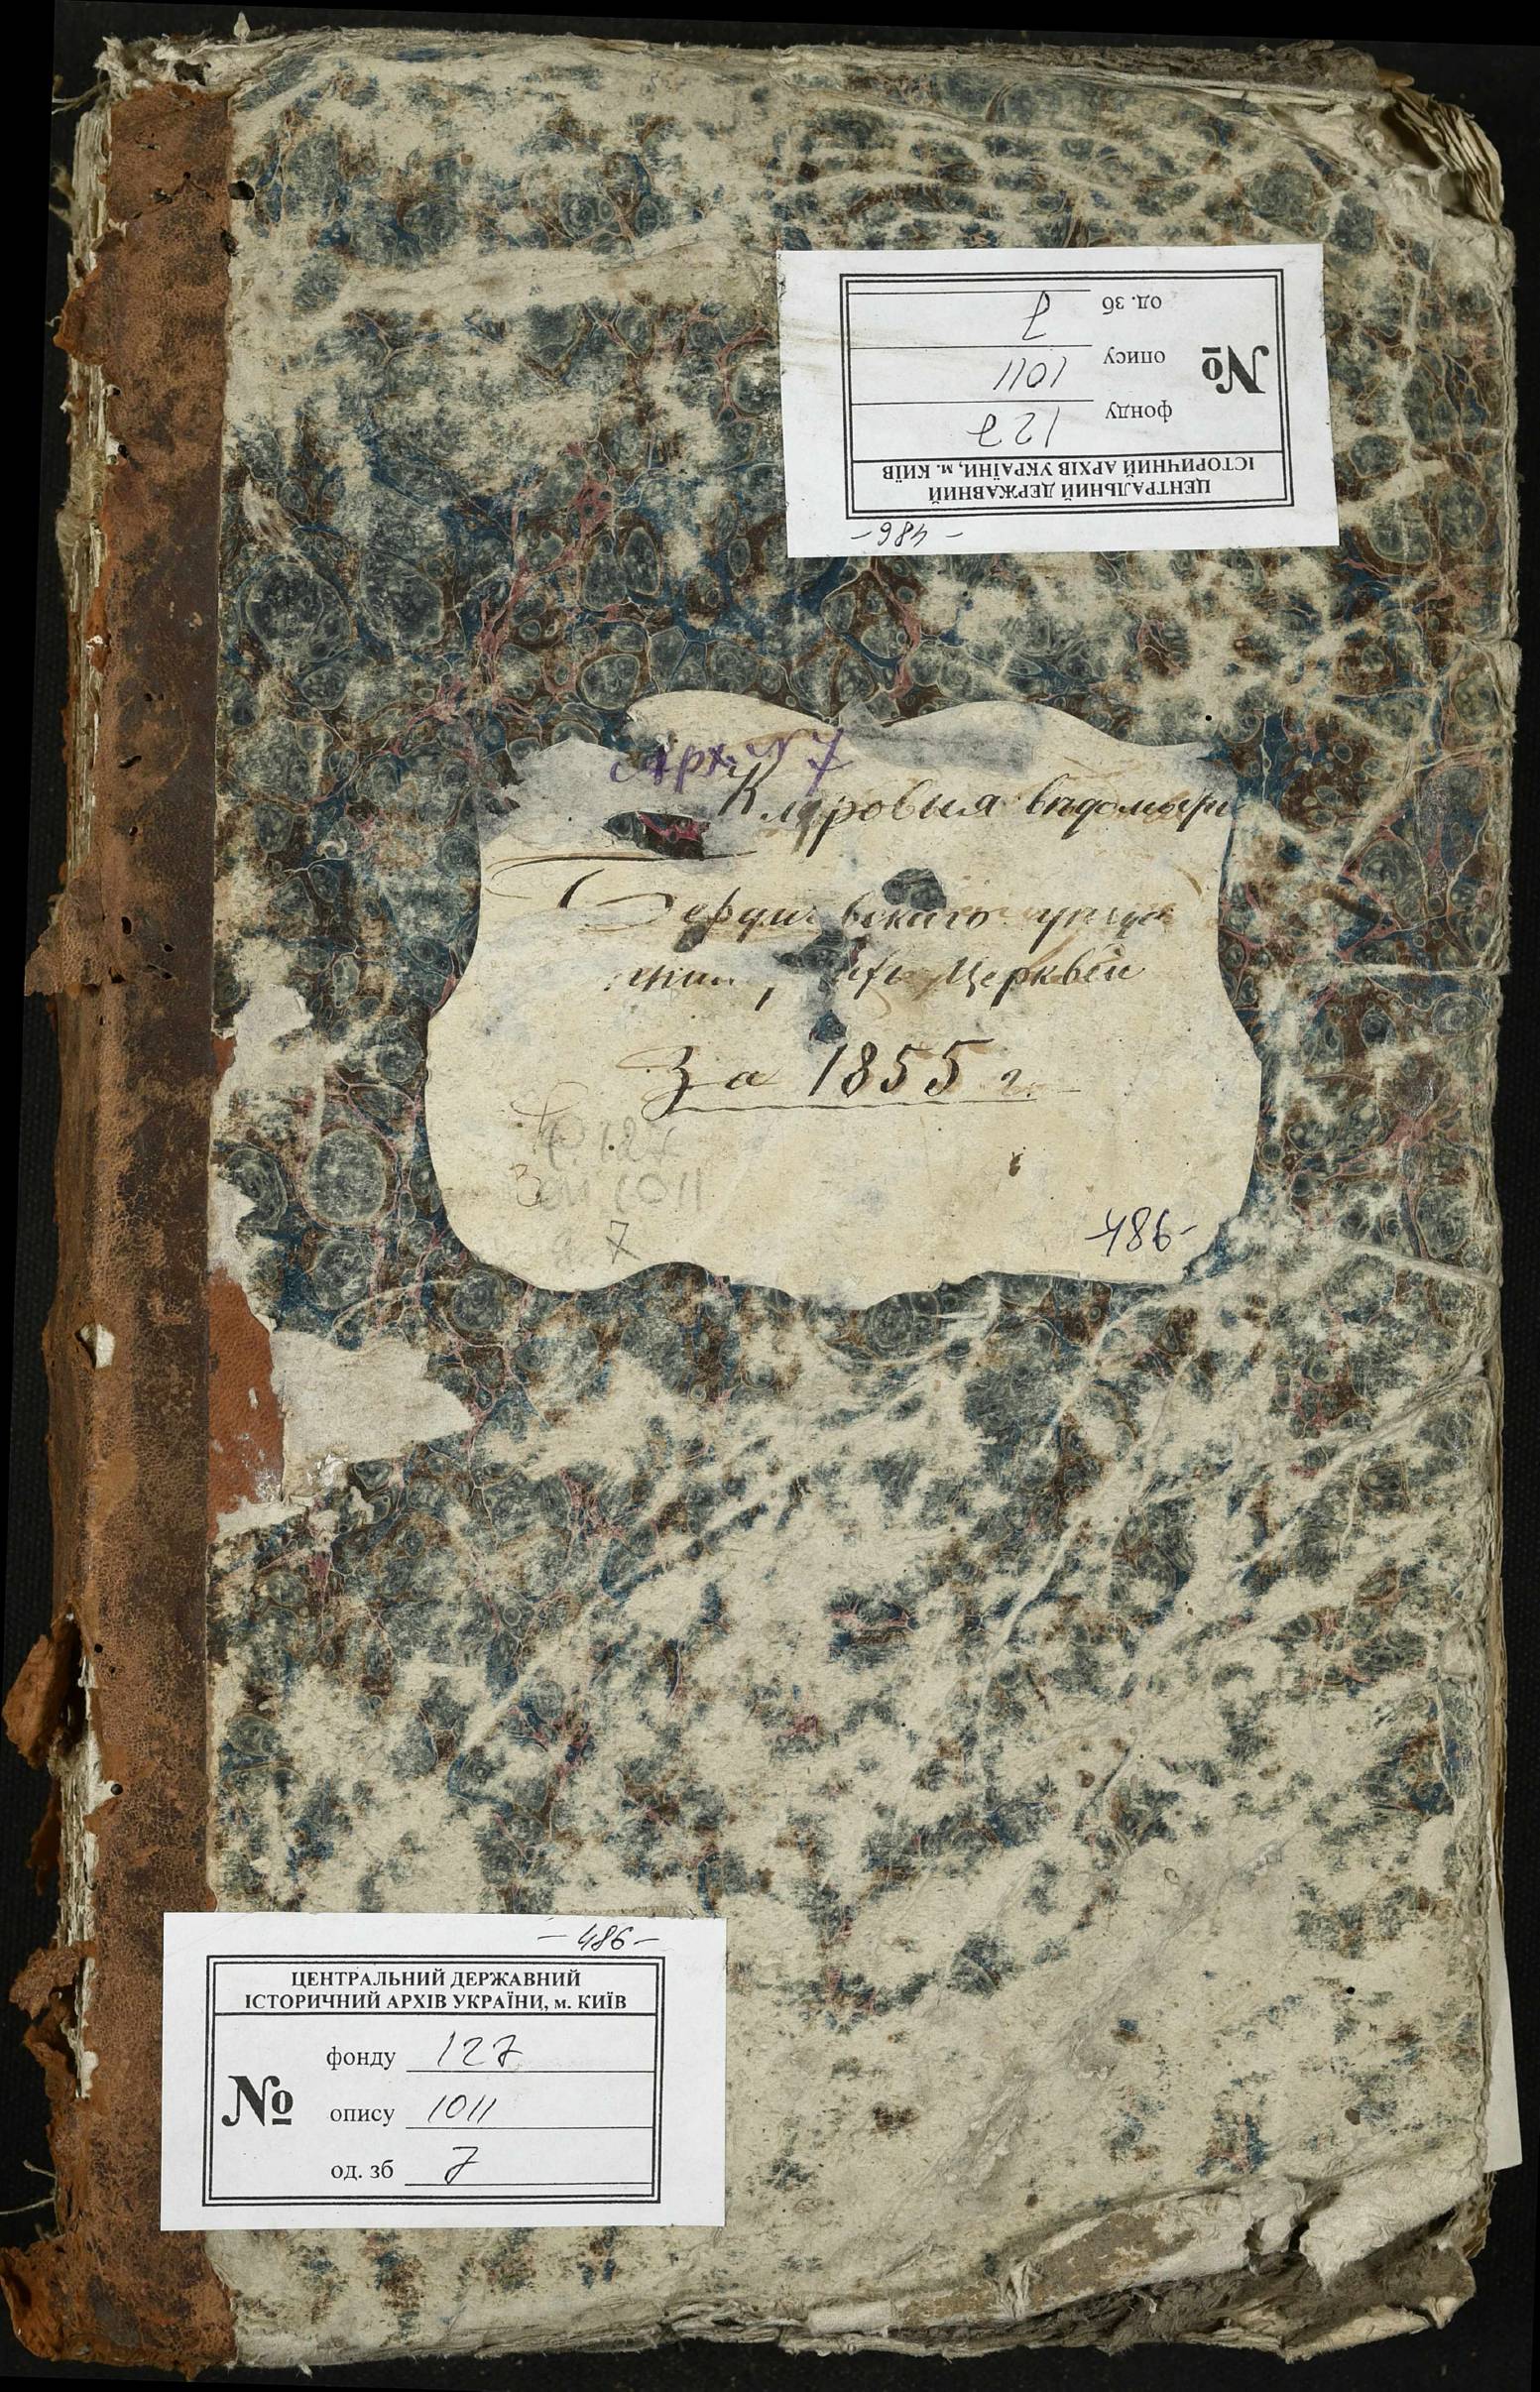 ЦЕНТРАЛЬНИЙ ДЕРЖАВНИЙ
ІСТОРИЧНИЙ АРХІВ УКРАЇНИ, м. КИЇВ
№
фонду 127
опису 1011
од. зб 7
-486-
Арх. № 7
Клировыя вѣдомости
Бердичевскаго уѣзда
Церквей
За 1855 г.
Ф 127
Оп 1011
7
-486-
-486-
ЦЕНТРАЛЬНИЙ ДЕРЖАВНИЙ
ІСТОРИЧНИЙ АРХІВ УКРАЇНИ, м. КИЇВ
№
фонду 127
опису 1011
од. зб 7